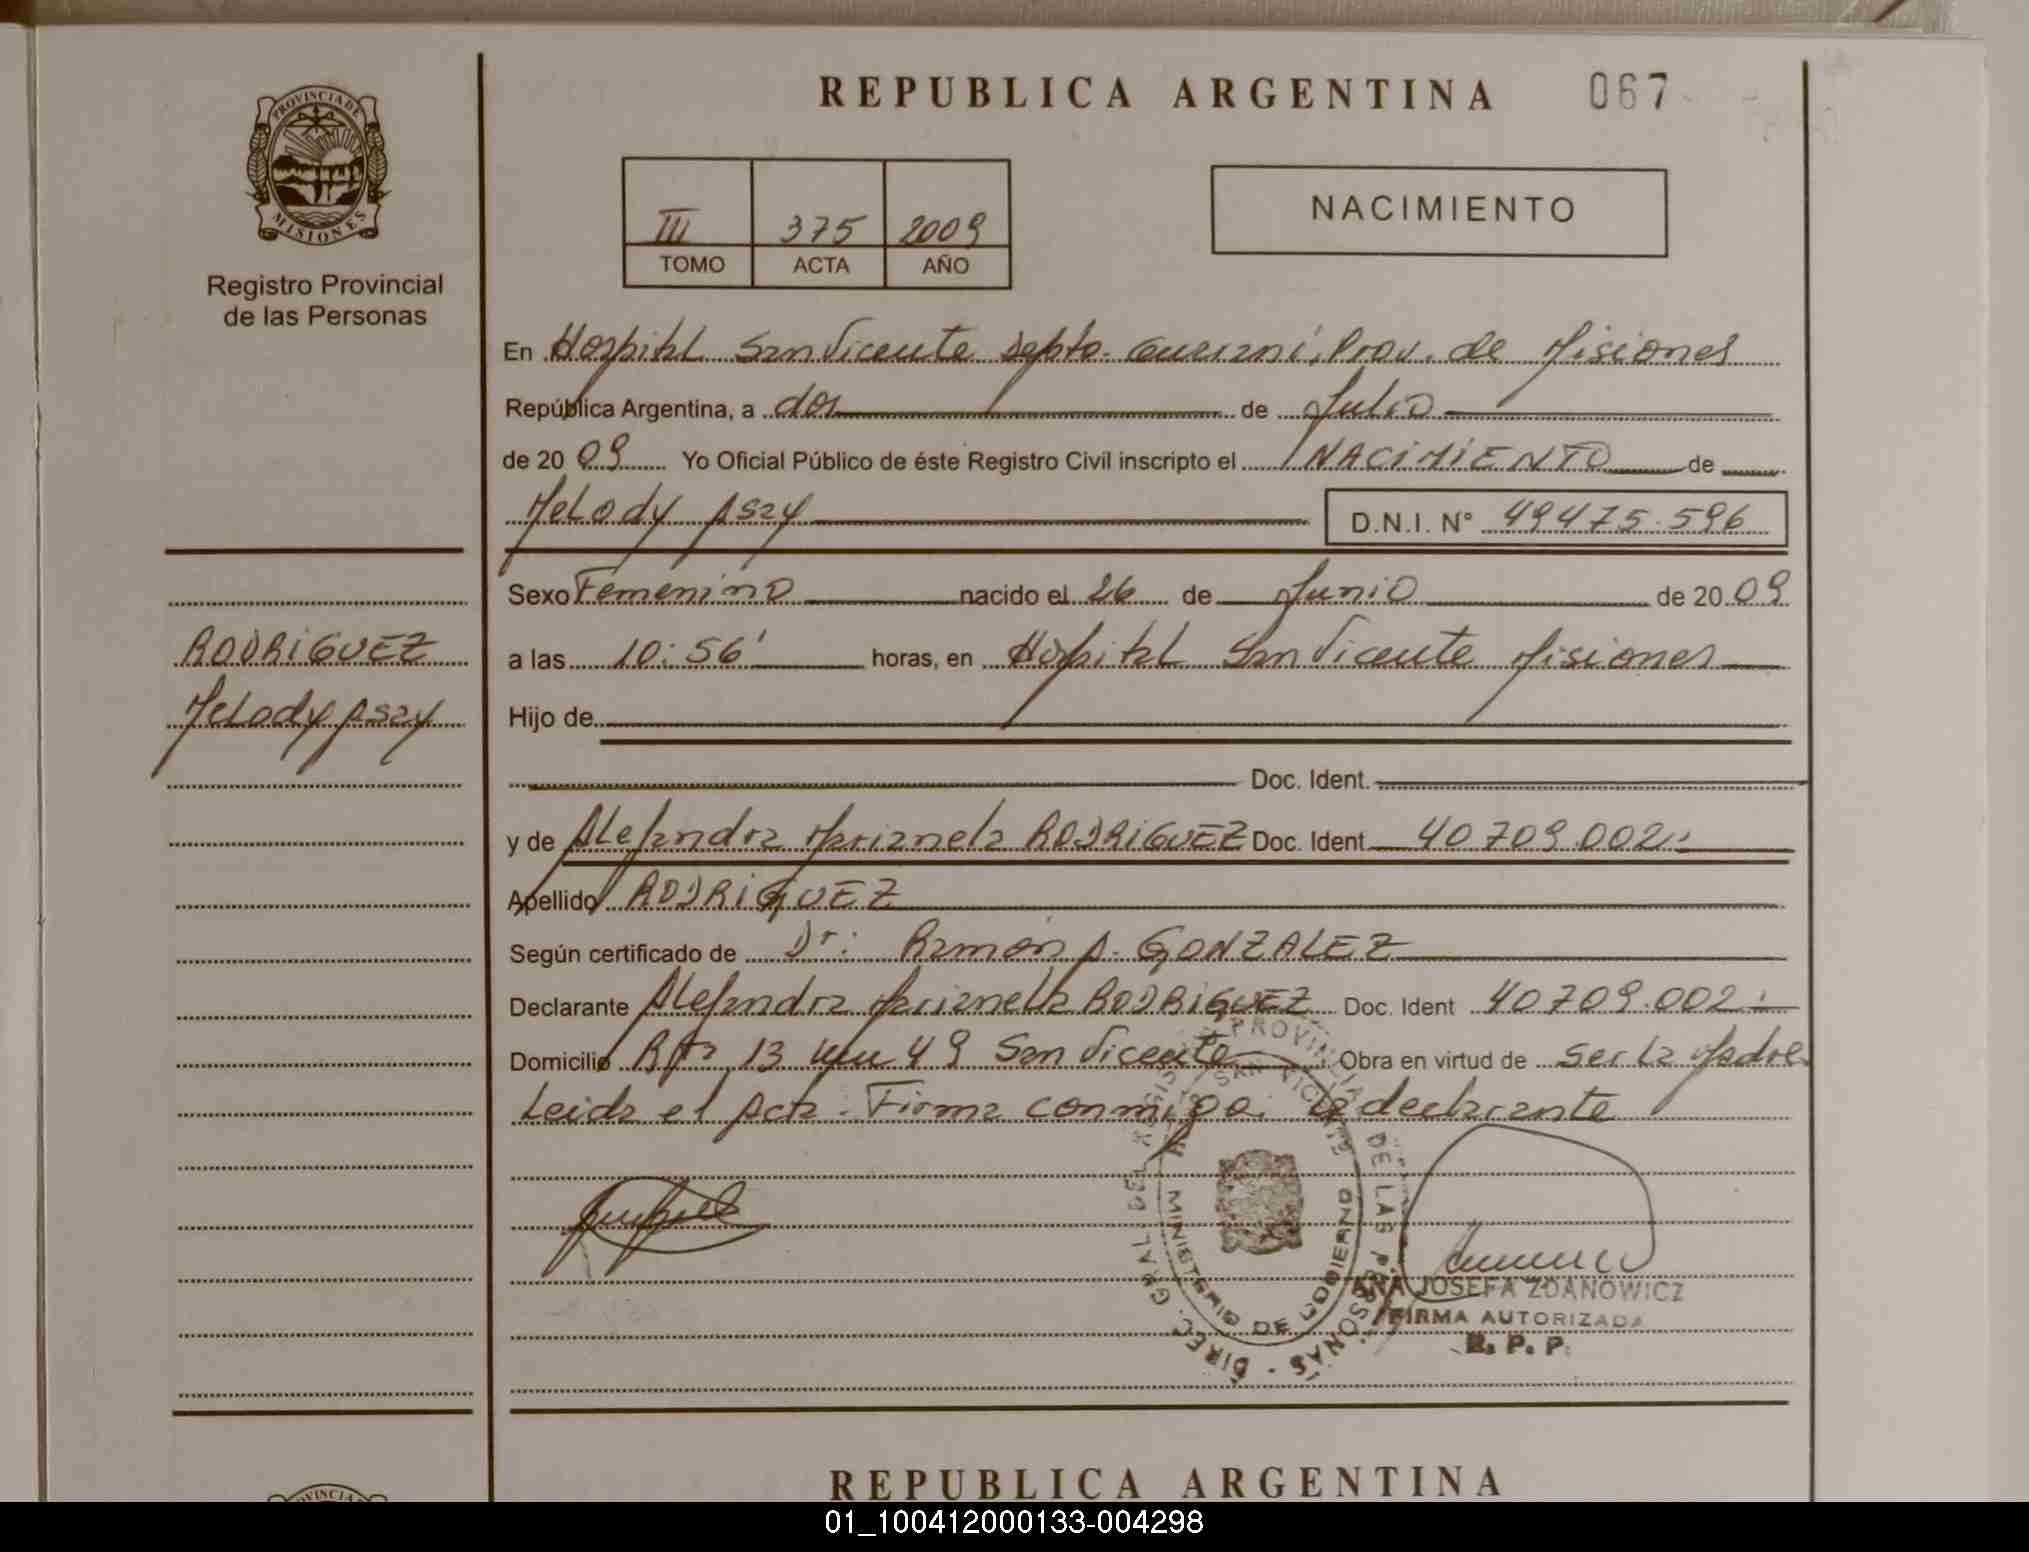 REPUBLICA ARGENTINA 067
PROVINCIA DE
MISIONES
Registro Provincial
de las Personas
III 375 2009
TOMO ACTA AÑO
NACIMIENTO
En Hospital San Vicente Depto. Guarani, Prov. de Misiones
República Argentina, a dos de Julio
de 20 09 Yo Oficial Público de éste Registro Civil inscripto el NACIMIENTO de
Melody Asay D.N.I. N° 49475.596
Sexo Femenino nacido el 26 de Junio de 20 09
RODRIGUEZ
Melody Asay
a las 10:56' horas, en Hospital San Vicente Misiones
Hijo de
Doc. Ident.
y de Alejandra Marianela RODRIGUEZ Doc. Ident 40709.002.-
Apellido RODRIGUEZ
Según certificado de Dr: Ramón A. GONZALEZ
Declarante Alejandra Marianela RODRIGUEZ Doc. Ident 40709.002.-
Domicilio Rta 13 Km 49 San Vicente Obra en virtud de Ser la Madre
Leida el Acta. Firma conmigo. La declarante
DIREC. GRAL. DEL REGISTRO PROVINCIAL DE LAS PERSONAS
SAN VICENTE
MINISTERIO DE GOBIERNO
ANA JOSEFA ZDANOWICZ
FIRMA AUTORIZADA
R. P. P.
PROVINCIA
REPUBLICA ARGENTINA
01_100412000133-004298